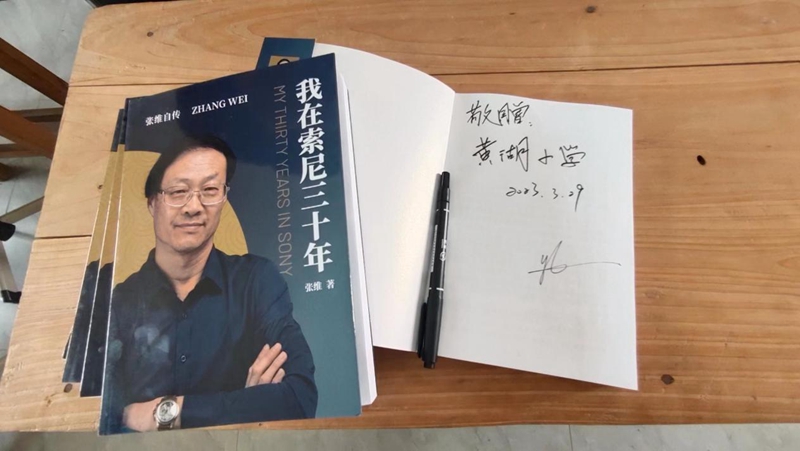 张维自传 ZHANG WEI
我在索尼三十年
MY THIRTY YEARS IN SONY
张维 著
敬贈
黄湖小学
2023.3.29